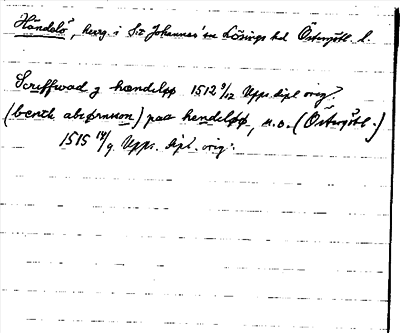 Händelö, herrg. i S:t Johannes' sn Lösings hd Östergötl. l.
Scriffwad j hændeløø 1512 9/12 Upps. dipl. orig.
(benct abiørnsson) paa hendeløø, n.o. (Östergötl.)
1515 14/9 Upps. dipl. orig.